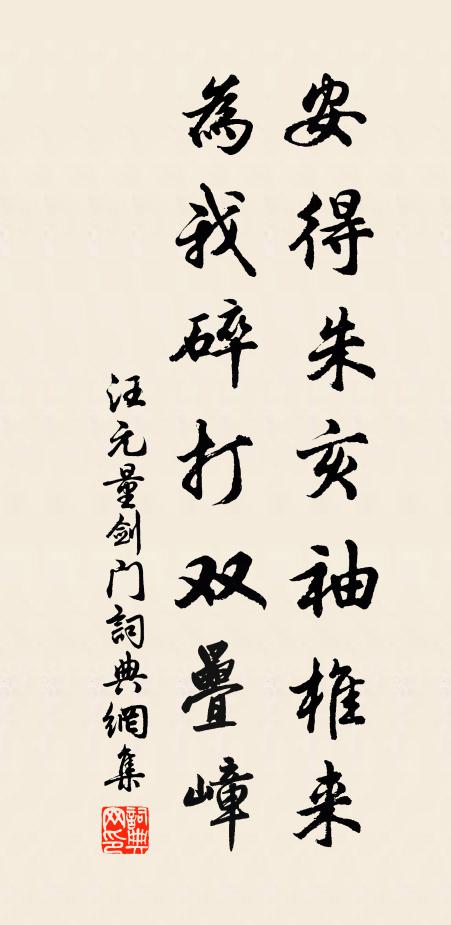 安得朱亥袖椎来
為我碎打双疊嶂
汪元量剑门詞典網集
詞典網印